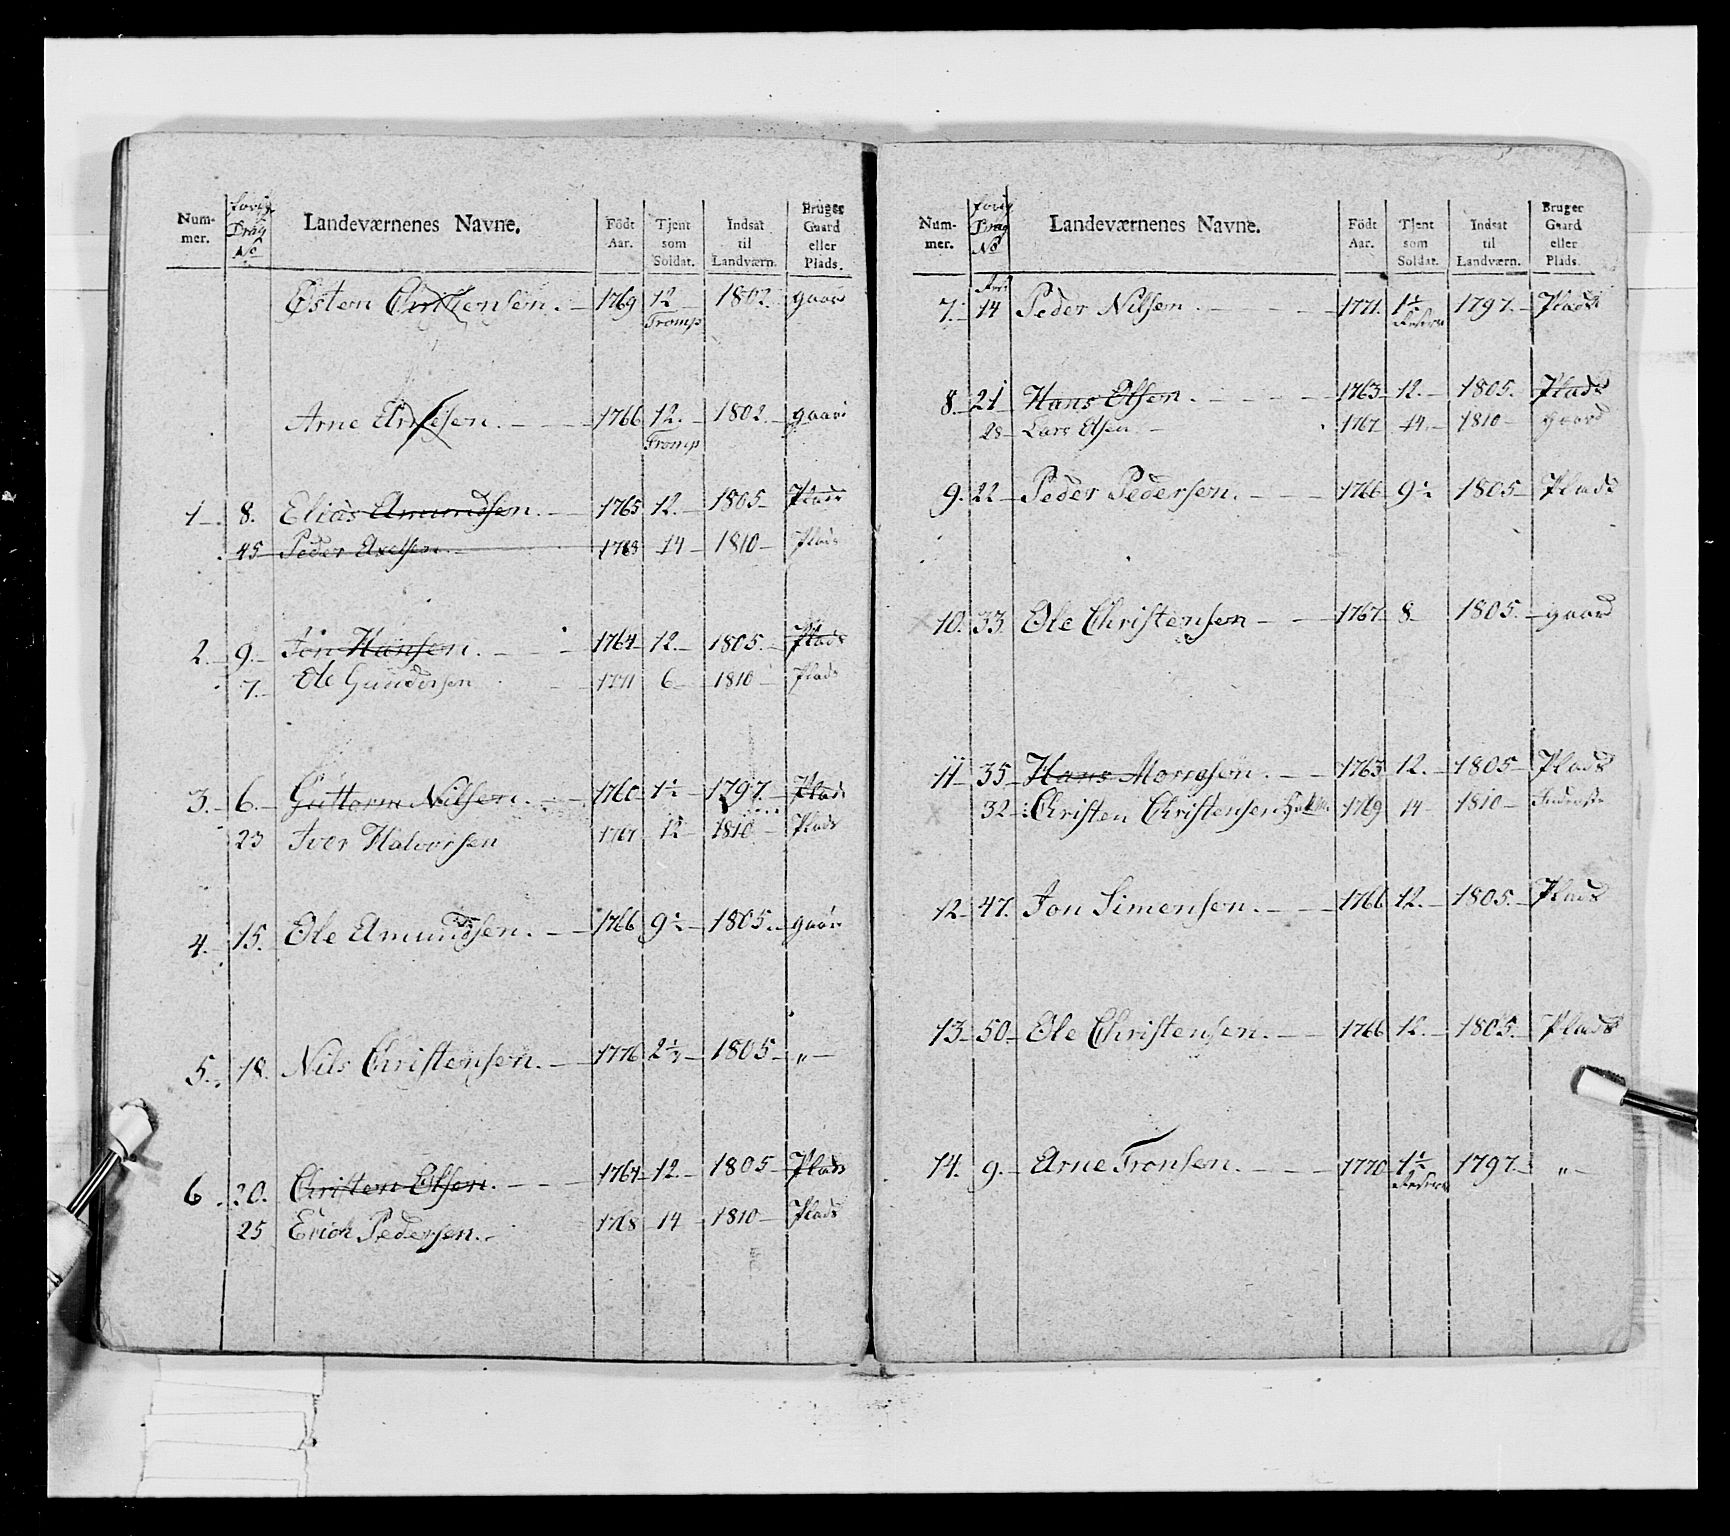 Num- mer. Forrig Drag No Landeværnenes Navne. Födt Aar. Tjent som Soldat. Indsat til Landværn. Bruger Gaard eller Plads.
Østen Christensen. 1769 12 1802. gaard
Tromp
Arne Arnesen. 1766 12. 1802. gaard
Tromp
1. 8. Elias Amundsen. 1765 12. 1805 Plads
45 Peder Axelsen 1768 14 1810 Plads
2. 9. Jon Hansen. 1764 12. 1805. Plads
7. Ole Gundersen 1771 6 1810 Plads
3. 6. Guttorm Nilsen. 1760 1½ 1797. Plads
23 Iver Halvorsen 1767 12 1810 Plads
4. 15. Ole Amundsen. 1766 9½ 1805. gaard
5. 18. Nils Christensen. 1776 2½ 1805 „
6. 20. Christen Olsen. 1767 12. 1805 Plads
25 Erich Pedersen. 1768 14 1810 Plads
Num- mer. Forrig Drag No Landeværnenes Navne. Födt Aar. Tjent som Soldat. Indsat til Landværn. Bruger Gaard eller Plads.
7. 14 Peder Nilsen. 1771. 1½ 1797. Plads
8. 21 Hans Olsen. 1763 12. 1805. Plads
28 Lars Olsen 1767 14. 1810 gaard
9. 22 Peder Pedersen. 1766 9½ 1805 Plads
10. 33 Ole Christensen 1767 8 1805. gaard
11 35 Hans Monsson. 1763 12. 1805 Plads
32 Christen Christensen 1769 14 1810
12. 47. Jon Simensen. 1766 12. 1805. Plads
13 50 Ole Christensen. 1766 12. 1805. Plads
14. 9. Arne Tronsen. 1770 1½ 1797. „